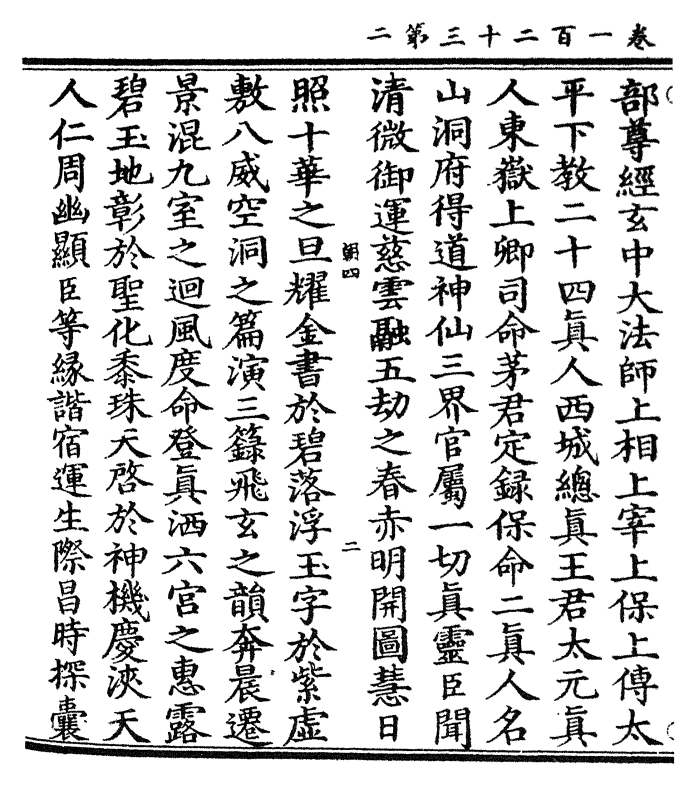 卷一百二十三第二
部尊經玄中大法師上相上宰上保上傅太
平下教二十四眞人西城總眞王君太元眞
人東嶽上卿司命茅君定録保命二眞人名
山洞府得道神仙三界官屬一切眞靈臣聞
清微御運慈雲融五劫之春赤明開圖慧日
朝四 二
照十華之旦耀金書於碧落浮玉字於紫虛
敷八威空洞之篇演三籙飛玄之韻奔晨遷
景混九室之迴風度命登眞洒六宮之惠露
碧玉地彰於聖化黍珠天啓於神機慶浹天
人仁周幽顯臣等緣諧宿運生際昌時探囊